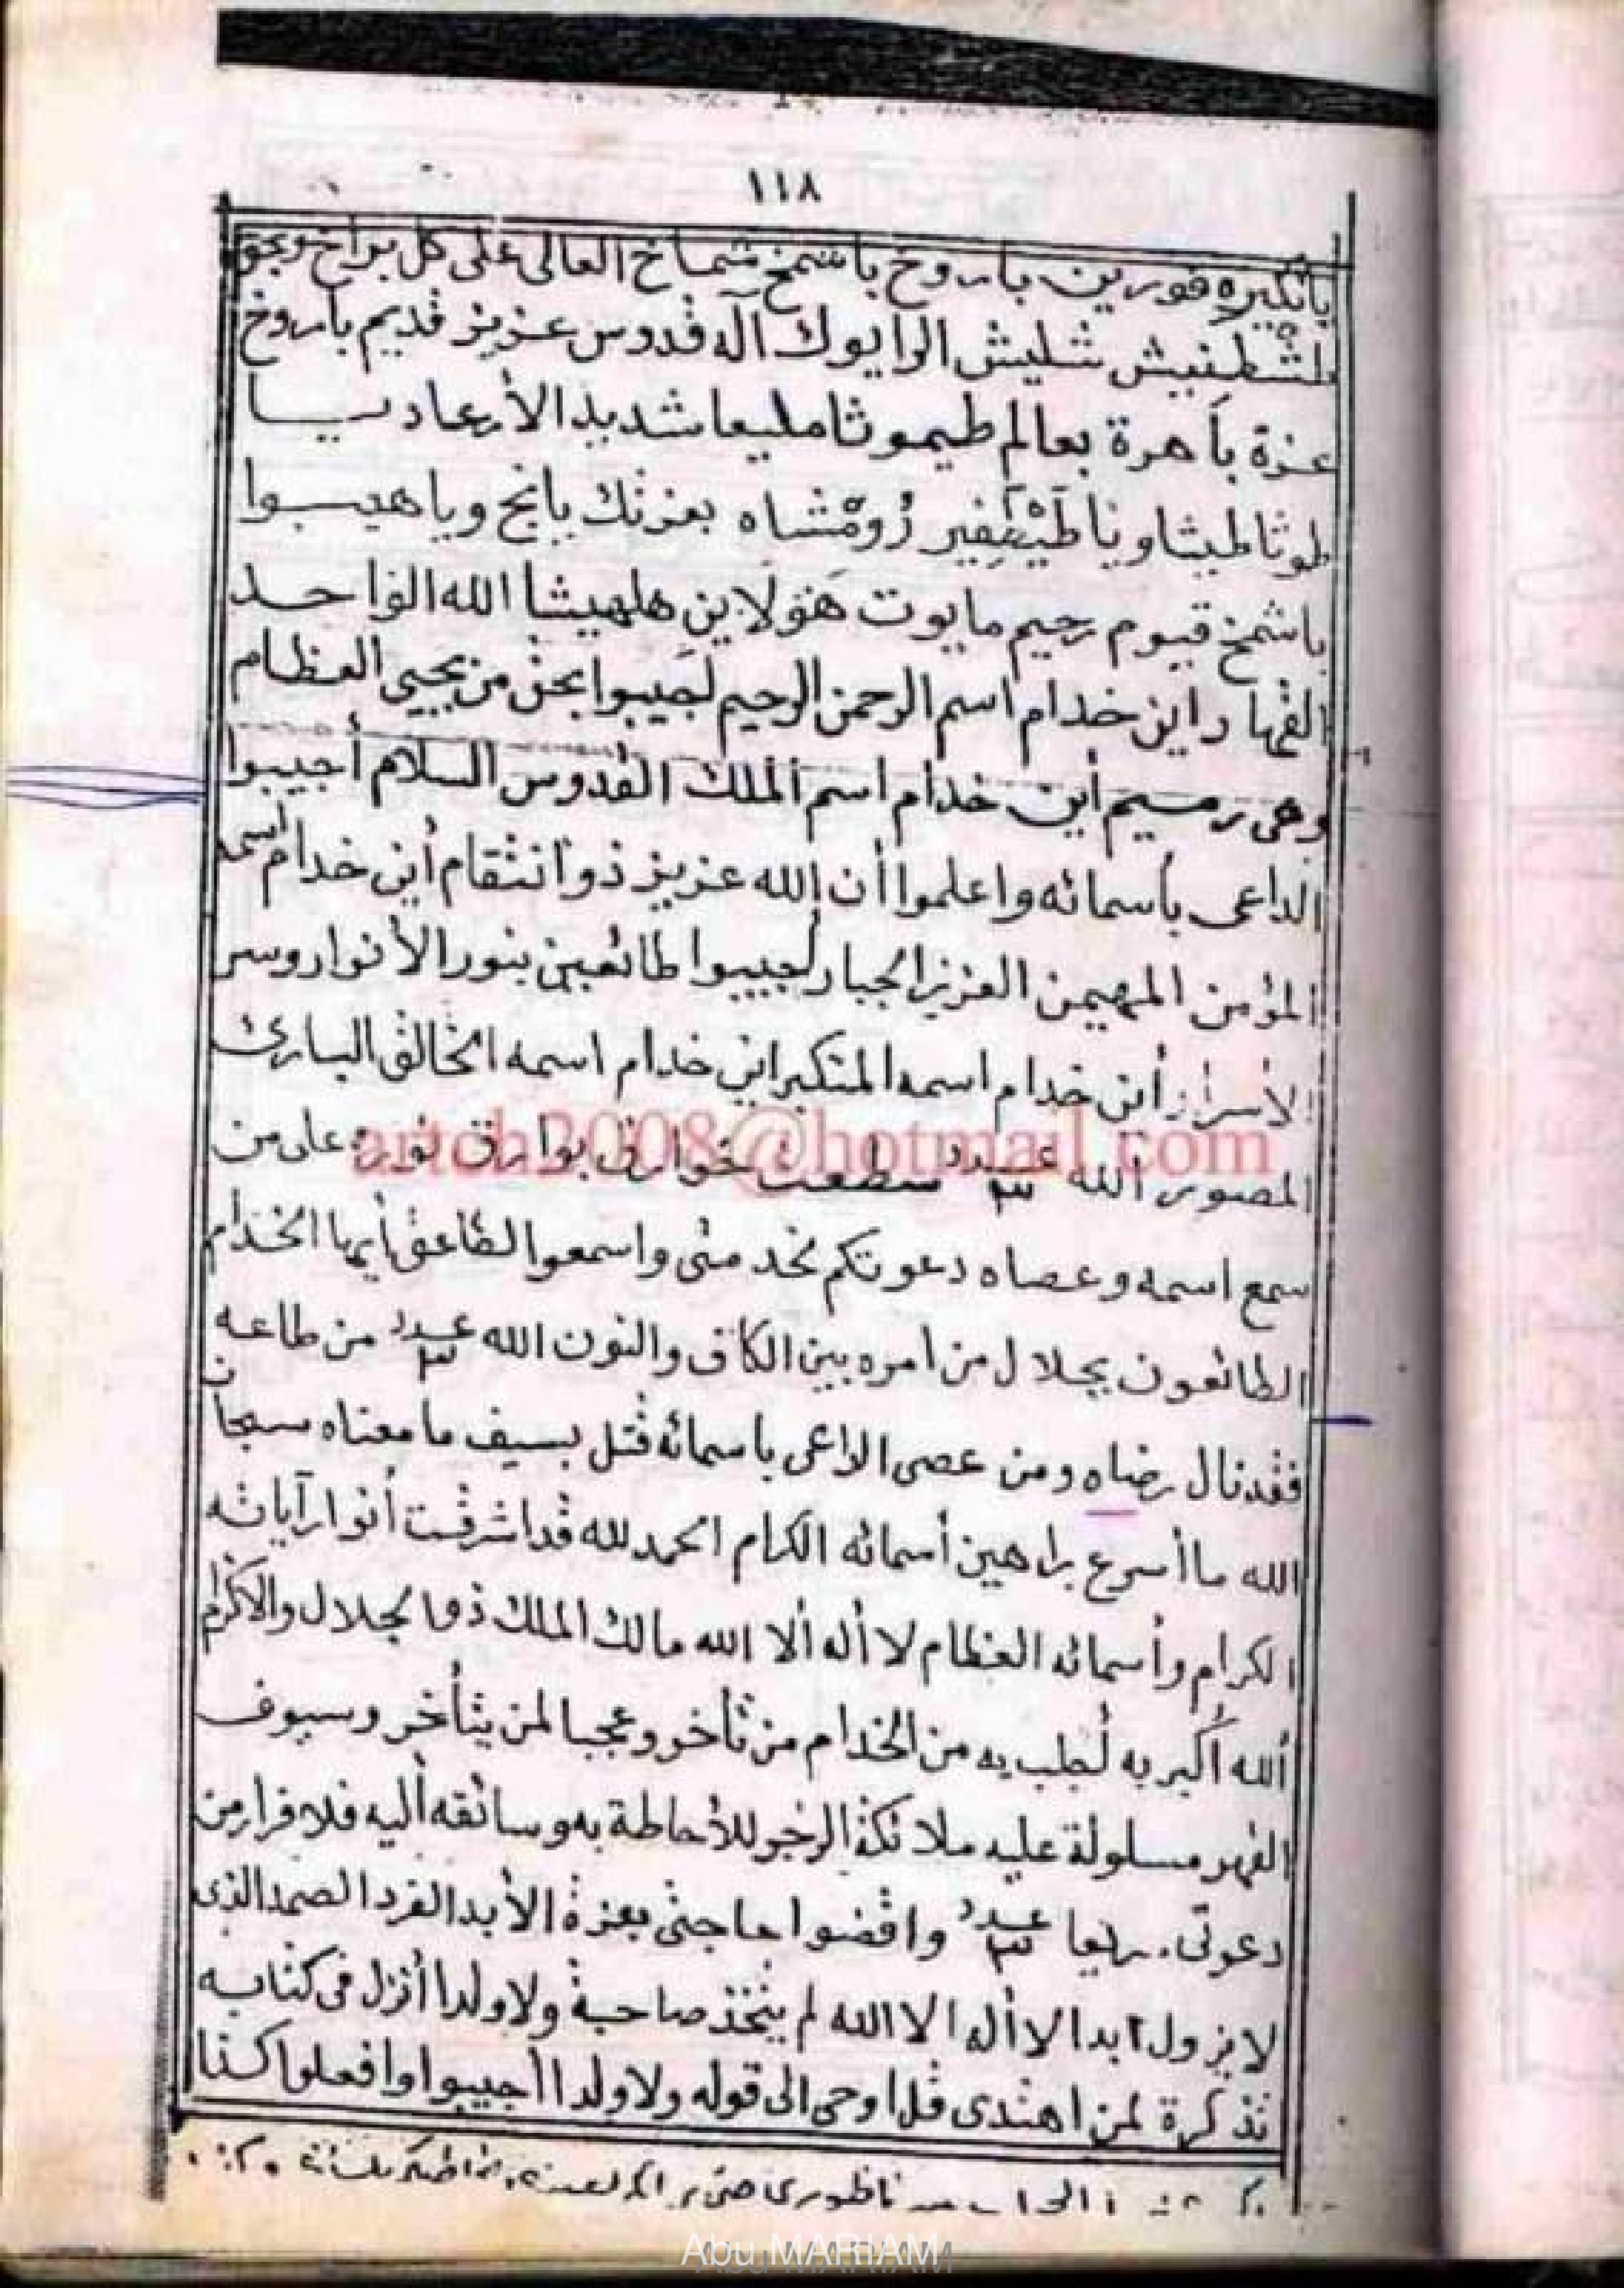 ١١٨
باروخ باشمخ شماخ العالى على كل براخ وبحق
شليش الوا يوك آله قدوس عزيز قديم باروخ
عزة باهرة بعالم طيموثا مليعا شديد الأرعاد يا
طوثا طيشا ويا بعزتك يانخ ويا هيبوا
باشمخ قيوم رحيم مايوت هؤلاين هلهيشا الله الواحد
القهار اين خدام اسم الرحمن الرحيم أجيبوا بحق من يحيي العظام
وهى رميم أين خدام اسم الملك القدوس السلام أجيبوا
الداعى بأسمائه واعلموا أن الله عزيز ذو انتقام أين خدام اسمه
المؤمن المهيمن العزيز الجبار أجيبوا طائعين بنور الأنوار وسر
الأسرار أين خدام اسمه المتكبر اين خدام اسمه الخالق البارئ
المصور الله عدد ٣ سطعت خوارق بوارق نوره على من
artch2008@hotmail.com
سمع اسمه وعصاه دعوتكم لخدمتى واسمعوا لطاعتى أيها الخدام
الطائعون بجلال من امره بين الكاف والنون الله عدد ٣ من طاعه
فقد نال رضاه ومن عصى الداعى باسمائه قتل بسيف ما معناه سبحان
الله ما أسرع براهين أسمائه الكرام الحمد لله قد اشرقت أنوار آياته
الكرام وأسمائه العظام لا أله ألا الله مالك الملك ذو الجلال والاكرام
ألله أكبر به أجلب به من الخدام من تأخر وعجبا لمن يتأخر وسيوف
القهر مسلولة عليه ملائكة الزجر للأحاطة به وسائقه أليه فلا فرار من
دعوتى سريعا عدد ٣ واقضوا حاجتى بعزة الأبد الفرد الصمد الذى
لا يزول ابدا لا أله الا الله لم يتخذ صاحبة ولا ولدا أنزل فى كتابه
تذكرة لمن اهتدى قل اوحى الى قوله ولا ولدا أجيبوا وافعلوا كذا
Abu MARIAM